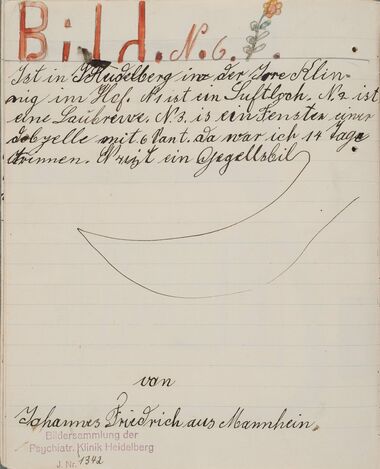 Bild. N. 6.
Ist in Heidelberg inz der Irre Klin-
nig im Hof. N1 ist ein Luftloch. N. 2 ist
eine Laubrewe. N. 3. is ein Fenster einer
dobzelle mit 6 Kant. da war ich 14 Tage
trinnen. N zeizt ein Gegellsbil
von
Johannes Friedrich aus Mannhein.
Bildersammlung der
Psychiatr. Klinik Heidelberg
J. Nr. 1342